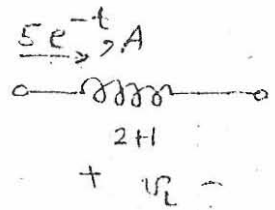 5e^-t, A
2H
+ v_L -